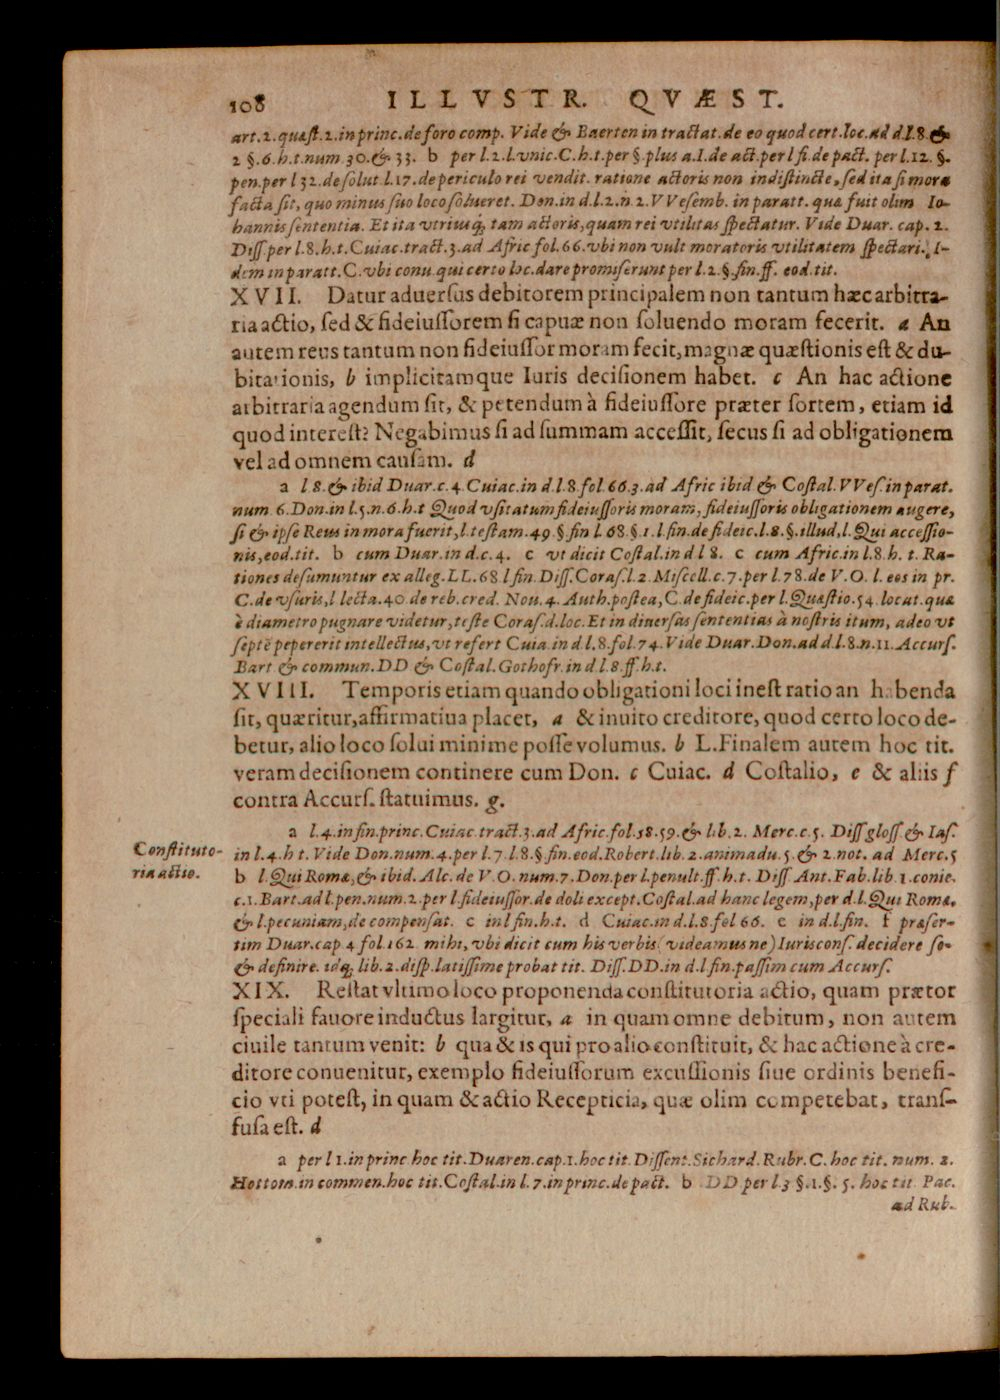 108 ILLVSTR. QVÆST.
art. 2. quæst. 2. in princ. de foro comp. Vide & Baerten in tractat. de eo quod cert. loc. ad d. l. 8. &
2 §. 6. h. t. num 30. & 33. b per l. 2. l. vnic. C. h. t. per §. plus a. I. de act. per l fi. de pact. per l. 12. §.
pen. per l 32. de solut. l. 17. de periculo rei vendit. ratione actoris non indistincte, sed ita si mora
facta sit, quo minus suo loco solueret. Don. in d. l. 2. n. 2. VVesemb. in paratt. quæ fuit olim Io-
hannis sententia. Et ita vtriusq́, tam actoris, quam rei vtilitas spectatur. Vide Duar. cap. 2.
Diss. per l. 8. h. t. Cuiac. tract. 3. ad Afric fol. 66. vbi non vult moratoris vtilitatem spectari. I-
dem in paratt. C. vbi conu. qui certo loc. dare promiserunt per l. 2. §. fin. ff. eod. tit.
XVII. Datur aduersus debitorem principalem non tantum hæc arbitra-
ria actio, sed & fideiussorem si capuæ non soluendo moram fecerit. a An
autem reus tantum non fideiussor moram fecit, magnæ quæstionis est & du-
bitationis, b implicitamque Iuris decisionem habet. c An hac actione
arbitraria agendum sit, & petendum à fideiussore præter sortem, etiam id
quod interest? Negabimus si ad summam accessit, secus si ad obligationem
vel ad omnem causam. d
a l 8. & ibid Duar. c. 4. Cuiac. in d. l. 8. fol. 66. 3. ad Afric ibid & Costal. VVes. in parat.
num 6. Don. in l. 5. n. 6. h. t Quod vsitatum fideiussoris moram, fideiussoris obligationem augere,
si & ipse Reus in mora fuerit, l. testam. 49 §. fin l. 68 §. 1. l. fin. de fideic. l. 8. §. illud, l. Qui accessio-
nis, eod. tit. b cum Duar. in d. c. 4. c vt dicit Costal. in d l 8. c cum Afric. in l. 8. h. t. Ra-
tiones desumuntur ex alleg. LL. 68 l fin. Diss. Coras. l. 2. Miscell. c. 7. per l. 78. de V. O. l. eos in pr.
C. de vsuris, l lecta. 40 de reb. cred. Nou. 4. Auth. postea, C. de fideic. per l. Quæstio. 54. locat. quæ
è diametro pugnare videtur, teste Coras. d. loc. Et in diuersas sententias à nostris itum, adeo vt
septē pepererit intellectus, vt refert Cuia. in d. l. 8. fol. 74. Vide Duar. Don. ad d. l. 8. n. 11. Accurs.
Bart & commun. DD & Costal. Gothofr. in d l. 8. ff. h. t.
XVIII. Temporis etiam quando obligationi loci inest ratio an habenda
sit, quæritur, affirmatiua placet, a & inuito creditore, quod certo loco de-
betur, alio loco solui minime posse volumus. b L. Finalem autem hoc tit.
veram decisionem continere cum Don. c Cuiac. d Costalio, e & aliis f
contra Accurs. statuimus. g.
a l. 4. in fin. princ. Cuiac. tract. 3. ad Afric. fol. 58. 59. & lib. 2. Merc. c. 5. Diss gloss. & Ias.
Constituto-
ria actio.
in l. 4. h t. Vide Don. num. 4. per l. 7. l. 8. §. fin. eod. Robert. lib. 2. animadu. 5. & 2. not. ad Merc. 5
b l. Qui Romæ, & ibid. Alc. de V. O. num. 7. Don. per l. penult. ff. h. t. Diss Ant. Fab. lib. 1. conie.
c. 1. Bart. ad l. pen. num. 2. per l. fideiussor. de doli except. Costal. ad hanc legem, per d. l. Qui Romæ,
& l. pecuniam, de compensat. c in l fin. h. t. d Cuiac. in d. l. 8. fol 66. e in d. l. fin. f præser-
tim Duar. cap. 4 fol. 162. mihi, vbi dicit cum his verbis (videamus ne) Iuriscons. decidere so-
& definire. idq́ lib. 2. disp. latissime probat tit. Diss. DD. in d. l. fin. passim cum Accurs.
XIX. Restat vltimo loco proponenda constitutoria actio, quam prætor
speciali fauore inductus largitur, a in quam omne debitum, non autem
ciuile tantum venit: b qua & is qui pro alio constituit, & hac actione à cre-
ditore conuenitur, exemplo fideiussorum excussionis siue ordinis benefi-
cio vti potest, in quam & actio Recepticia, quæ olim competebat, trans-
fusa est. d
a per l 1. in princ hoc tit. Duaren. cap. 1. hoc tit. Dissent. Sichard. Rubr. C. hoc tit. num. 2.
Hottom. in commen. hoc tit. Costal. in l. 7. in princ. de pact. b DD per l. 3 §. 1. §. 5. hoc tit Pac.
ad Rub.